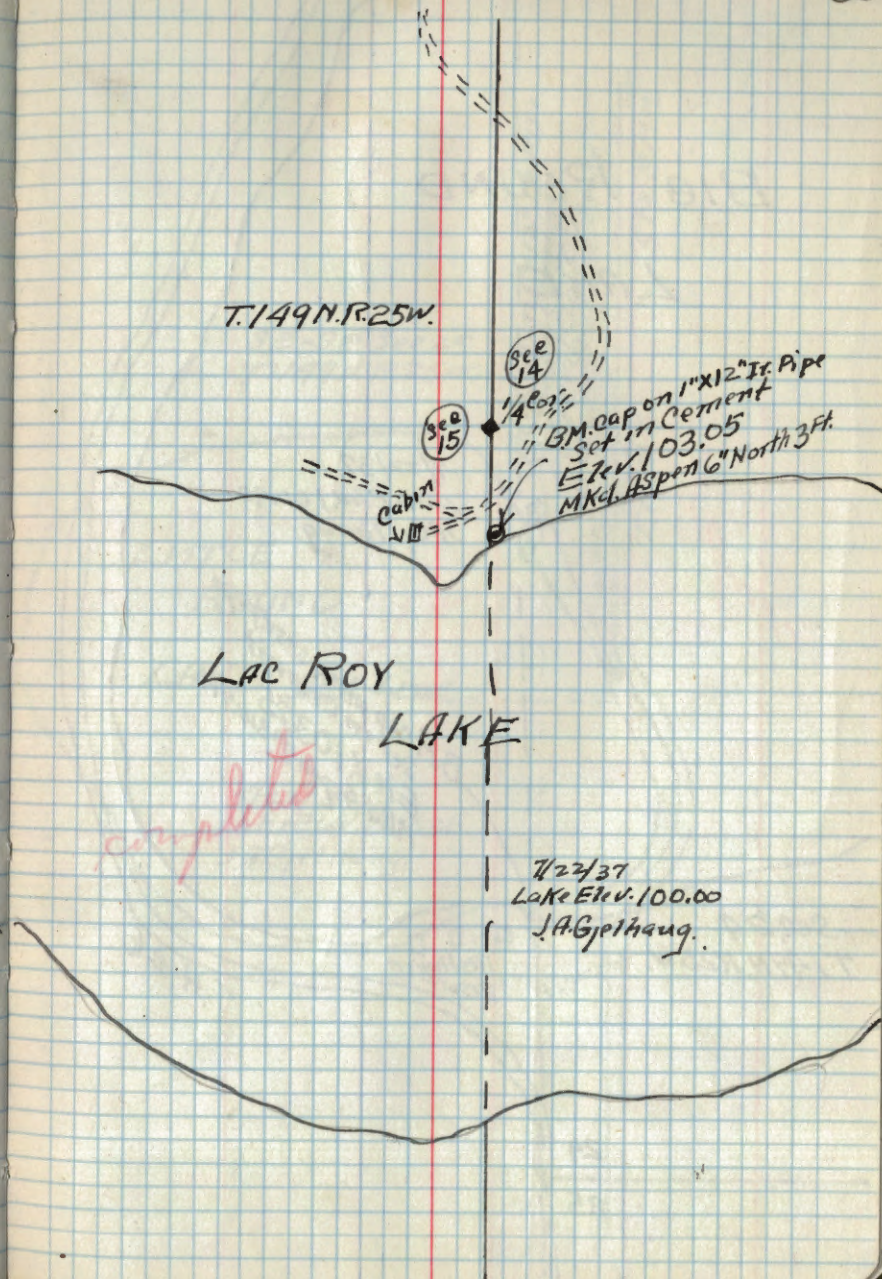 T.149N.R.25W.
Sec
14
1/4 Cor.
Sec
15
B.M. Cap on 1"X12" Ir. Pipe
Set in Cement
Elev. 103.05
Mkd. Aspen 6" North 3 Ft.
Cabin
LAC ROY
LAKE
completed
7/22/37
Lake Elev. 100.00
J.A. Gjelhaug.